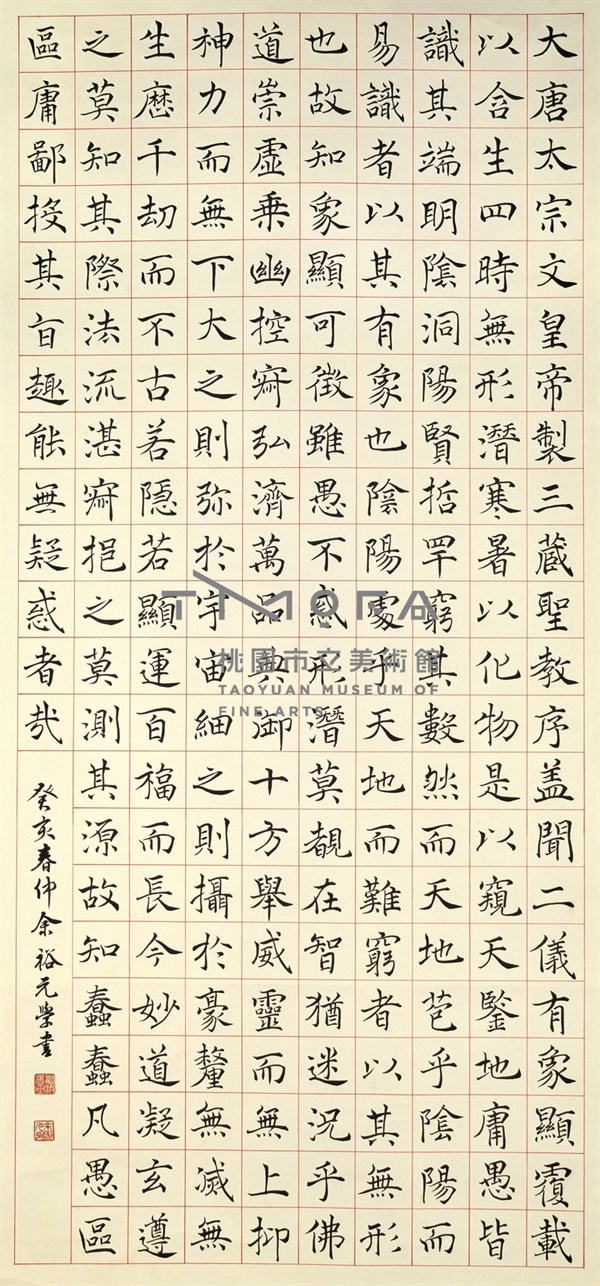 大唐太宗文皇帝製三藏聖教序盖聞二儀有象顯覆載
以含生四時無形潛寒暑以化物是以窺天鑒地庸愚皆
識其端明陰洞陽賢哲罕窮其數然而天地苞乎陰陽而
易識者以其有象也陰陽處乎天地而難窮者以其無形
也故知象顯可徵雖愚不惑形潛莫覩在智猶迷況乎佛
道崇虛乗幽控寂弘濟萬品典御十方舉威靈而無上抑
神力而無下大之則弥於宇宙細之則攝於豪釐無滅無
生歷千劫而不古若隱若顯運百福而長今妙道凝玄遵
之莫知其際法流湛寂挹之莫測其源故知蠢蠢凡愚區
區庸鄙投其旨趣能無疑惑者哉
癸亥春仲余裕元學書
TMOFA
桃園市立美術館
TAOYUAN MUSEUM OF
FINE ARTS